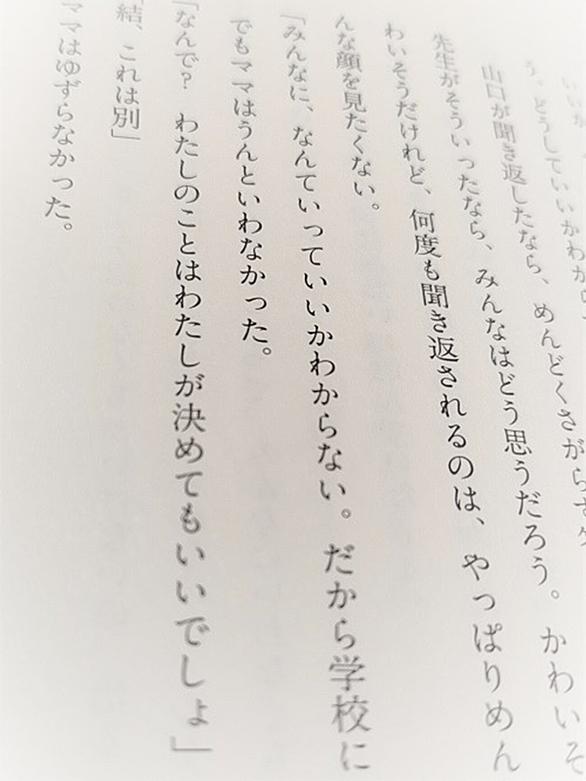 う。どうしていいかわから
山口が聞き返したなら、めんどくさがらず
先生がそういったなら、みんなはどう思うだろう。かわいそ
わいそうだけれど、何度も聞き返されるのは、やっぱりめん
んな顔を見たくない。
「みんなに、なんていっていいかわからない。だから学校に
でもママはうんといわなかった。
「なんで？　わたしのことはわたしが決めてもいいでしょ」
結、これは別」
ママはゆずらなかった。